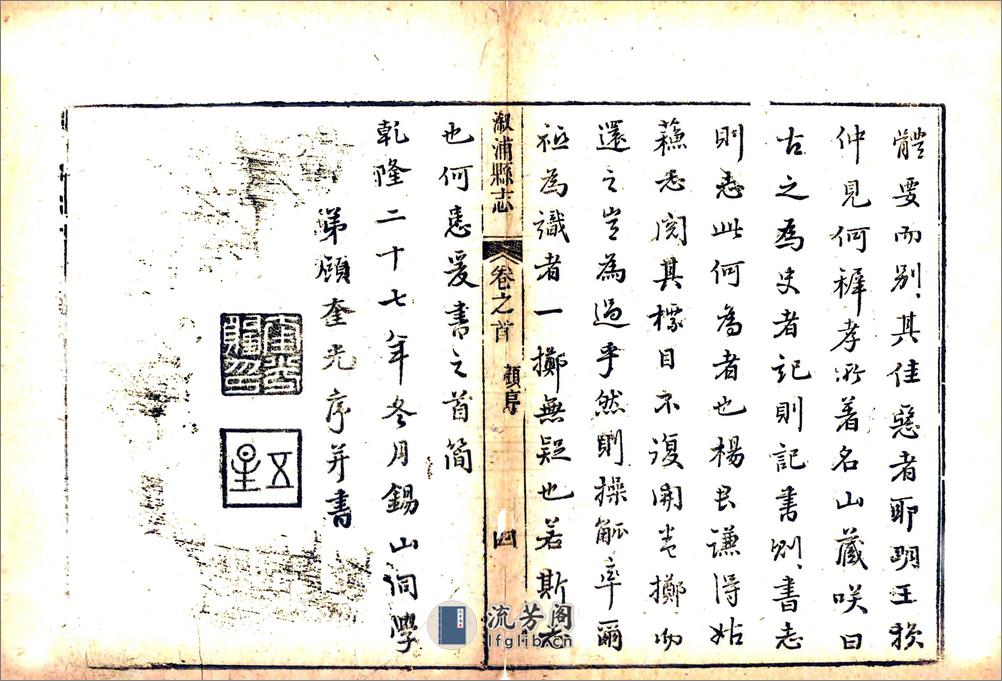 體要而別其佳惡者耶明王損
仲見何穉孝所著名山藏咲曰
古之為史者記則記書則書志
則志此何為者也楊君謙得姑
蘇志閱其標目不復開卷擲而
還之豈為過乎然則操觚率爾
祗為識者一擲無疑也若斯者
溆浦縣志 卷之首 顧序 四
也何恙爰書之首簡
乾隆二十七年冬月錫山同學
弟顧奎光序并書
流芳阁
lfglib.cn